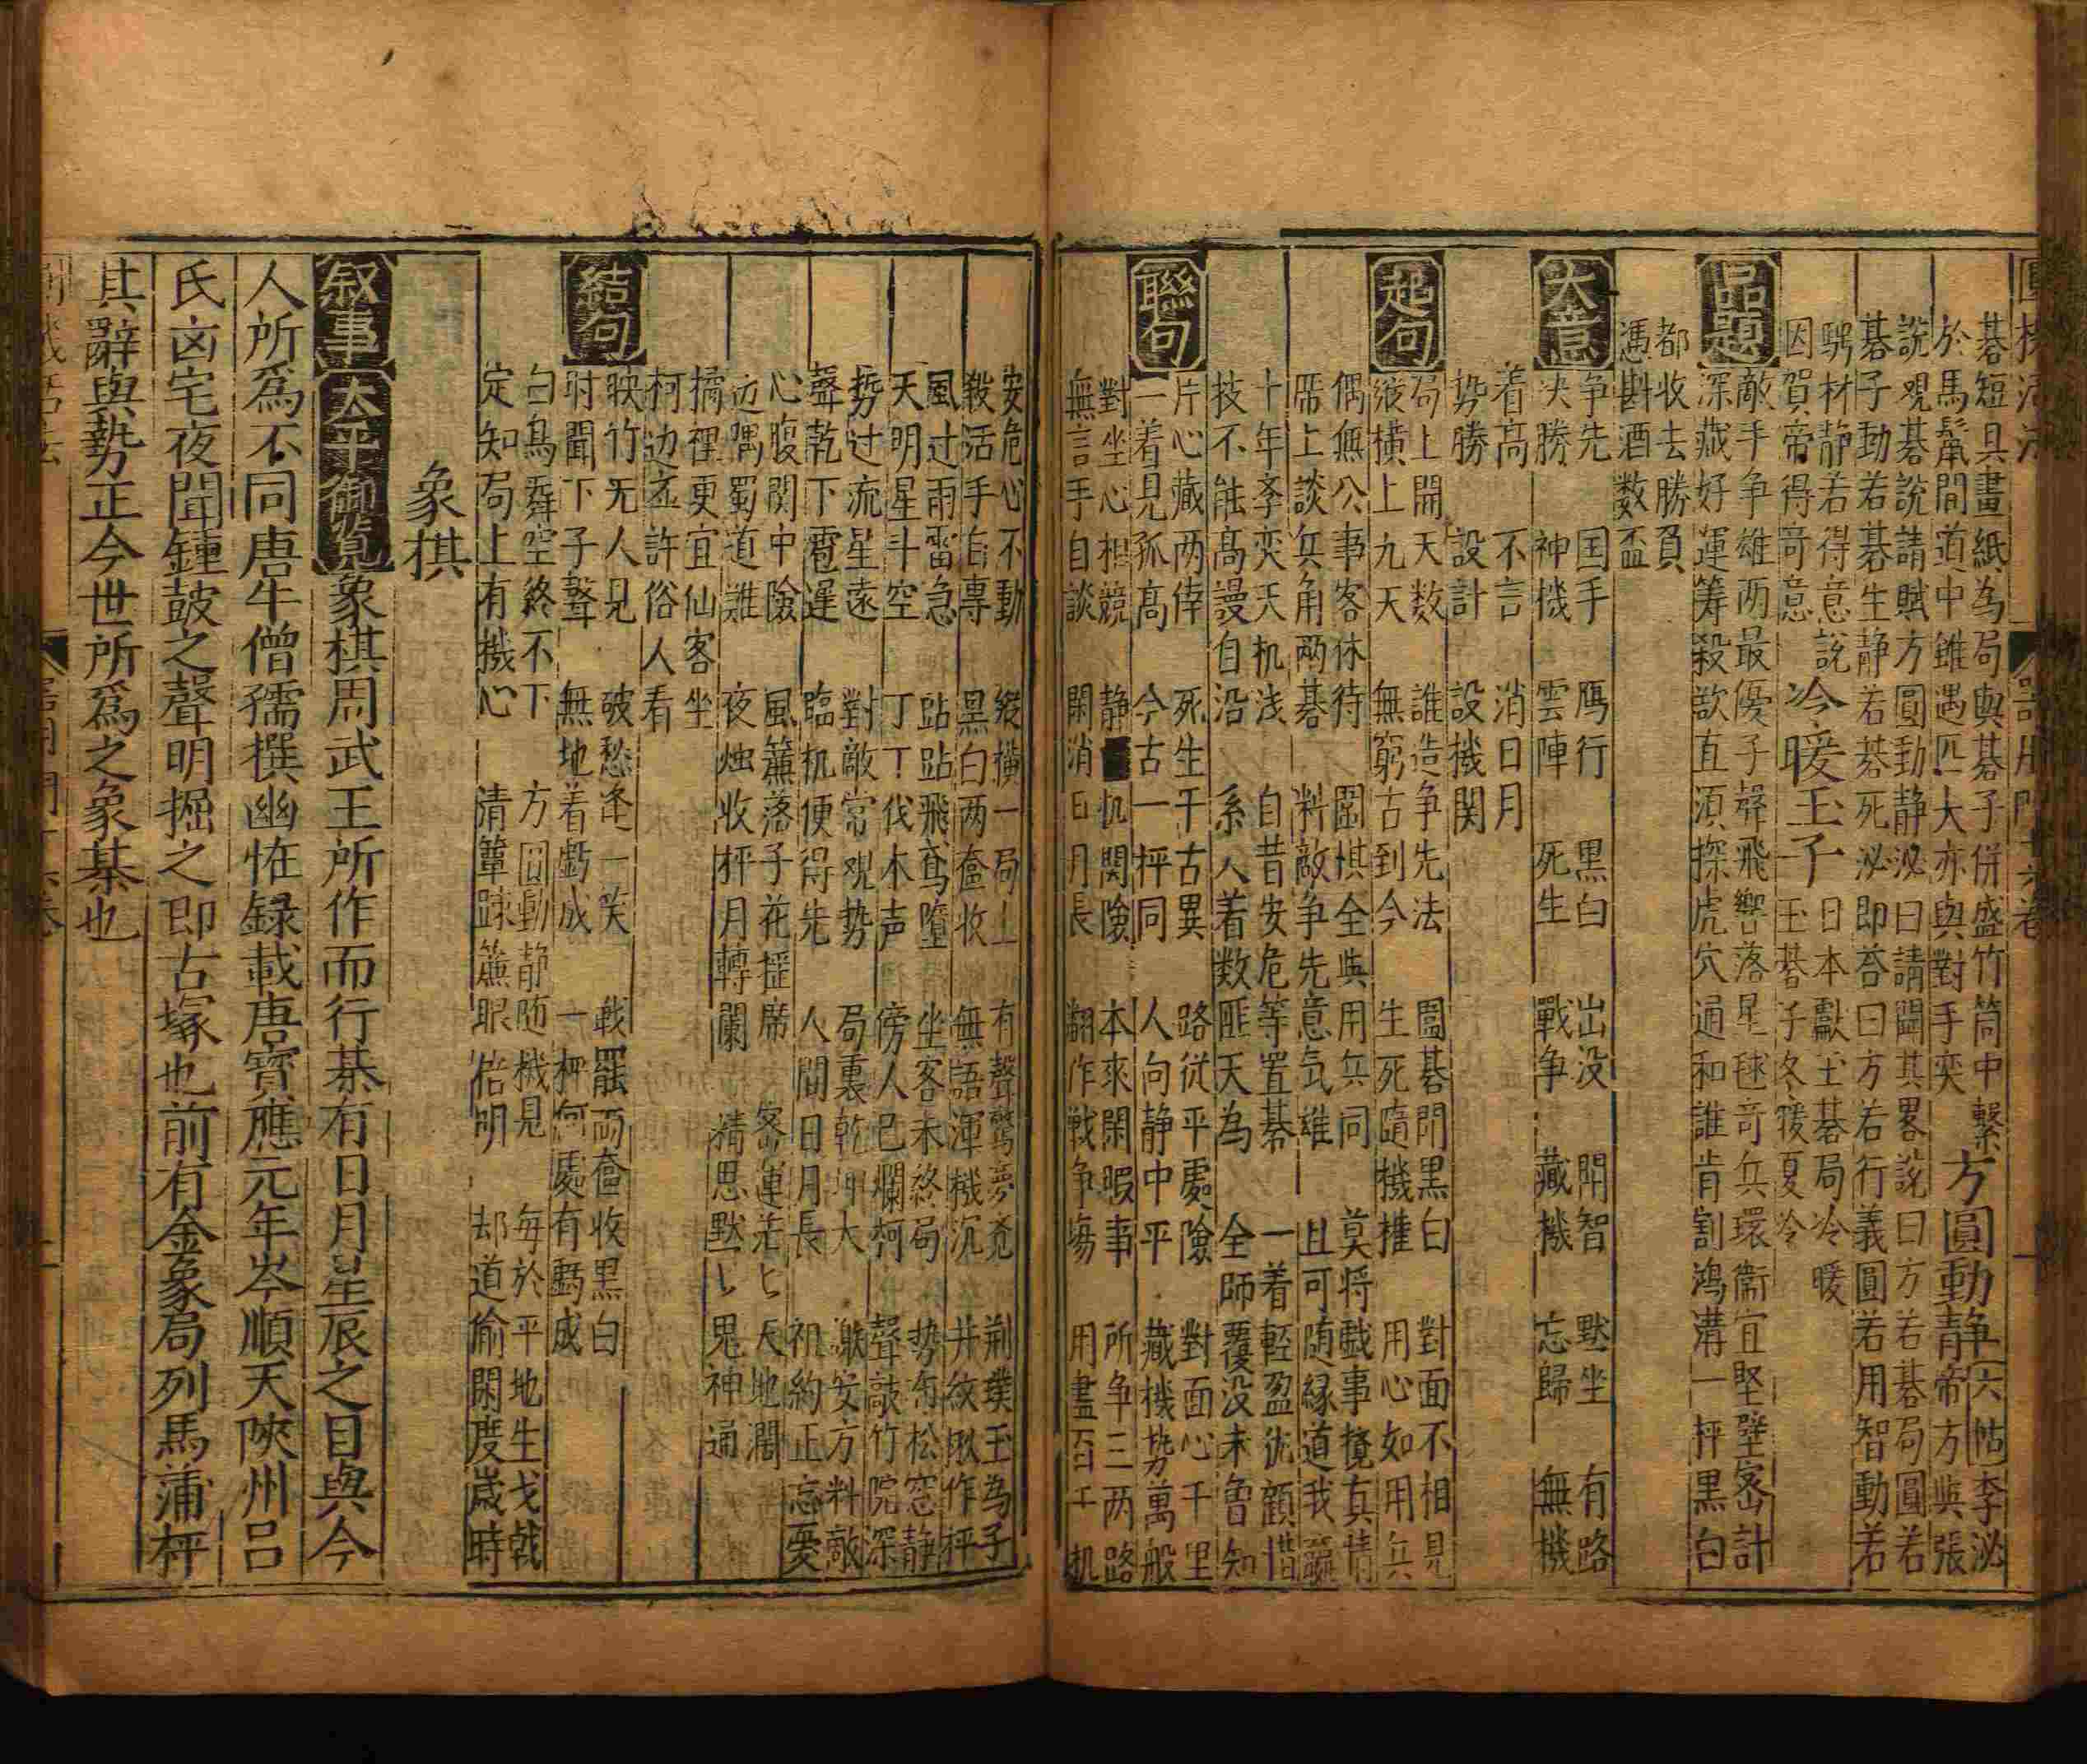 碁短具畫紙為局與碁子併盛竹筒中繫
於馬鬛間道中雖遇匹大亦與對手奕
方圓動静
六帖李泌
帝方與張
説觀碁説請賦方圓動静泌曰請聞其畧説曰方若碁局圓若
碁子動若碁生静若碁死泌即荅曰方若行義圓若用智動若
騁材静若得意説
因賀帝得竒意
冷暖玉子
日本獻玉碁局冷暖
玉碁子冬暖夏冷
品題
敵手争雄两最優子聲飛響落星毬竒兵環衞宜堅壁宻計
深藏好運筹殺欲直須探虎穴通和誰肯割鴻溝一枰黒白
都收去勝負
憑斟酒数盃
大意
争先 国手 鴈行 黒白 出没 開智 黙坐 有路
决勝 神機 雲陣 死生 戰争 藏機 忘歸 無機
着高 不言 消日月
势勝 設計 設機関
起句
局上開天数 誰造争先法 圍碁閗黒白 對面不相見
縱横上九天 無窮古到今 生死隨機權 用心如用兵
偶無公事客休待 圍棋全與用兵同 莫将戱事攪真情
席上談兵角两碁 料敵争先意气雄 且可随縁道我贏
十年李奕天机浅 自昔安危等置碁 一着輕盈㳘顧惜
技不能髙謾自沿 系人着数匪天為 全師覆没未曾知
聮句
片心藏两倖 死生千古異 路従平處險 對面心千里
一着見孤高 今古一枰同 人向静中平 藏機势萬般
對坐心相競 静 机関險 本來閑暇事 所争三两路
無言手自談 閑消日月長 翻作戦争塲 用盡百千机
安危心不動 縱横一局上 有聲驚夢竞 荆璞玉為子
殺活手自専 黒白两奩收 無語渾機沉 井紋楸作枰
風过雨雷急 跕跕飛鳶墮 坐客未終局 势勻松窓静
天明星斗空 丁丁伐木声 傍人已爛柯 聲敲竹院深
势过流星遠 對敵常观势 局裏乾坤大 謝安方料敵
聲乾下雹遲 臨机便得先 人間日月長 祖約正忘憂
心腹関中險 風簾落子花揺席 宻運茫匕天地濶
边隅蜀道難 夜烛收枰月轉闌 精思黙匕鬼神通
橘裡更宜仙客坐
柯边盃許俗人看
結句
映竹无人見 破愁逢一笑 戦罷两奩收黒白
時聞下子聲 無地着虧成 一枰何處有虧成
白鳥舜空終不下 方圓動静随機見 毎於平地生戈戟
定知局上有機心 清簟踈簾眼倍明 却道偷閑度歲時
象棋
叙事 太平御覧 象棋周武王所作而行碁有日月星辰之目與今
人所爲不同唐牛僧孺撰幽恠録載唐寳應元年岑順天陜州吕
氏凶宅夜聞鍾鼓之聲明掘之即古塚也前有金象局列馬蒲枰
其辭與勢正今世所爲之象碁也